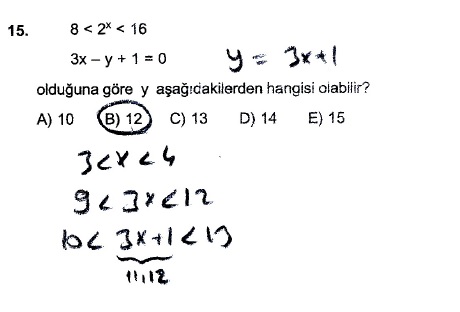 15. 8 < 2ˣ < 16
3x – y + 1 = 0 y = 3x+1
olduğuna göre y aşağıdakilerden hangisi olabilir?
A) 10 B) 12 C) 13 D) 14 E) 15
3<x<4
9<3x<12
10<3x+1<13
11,12